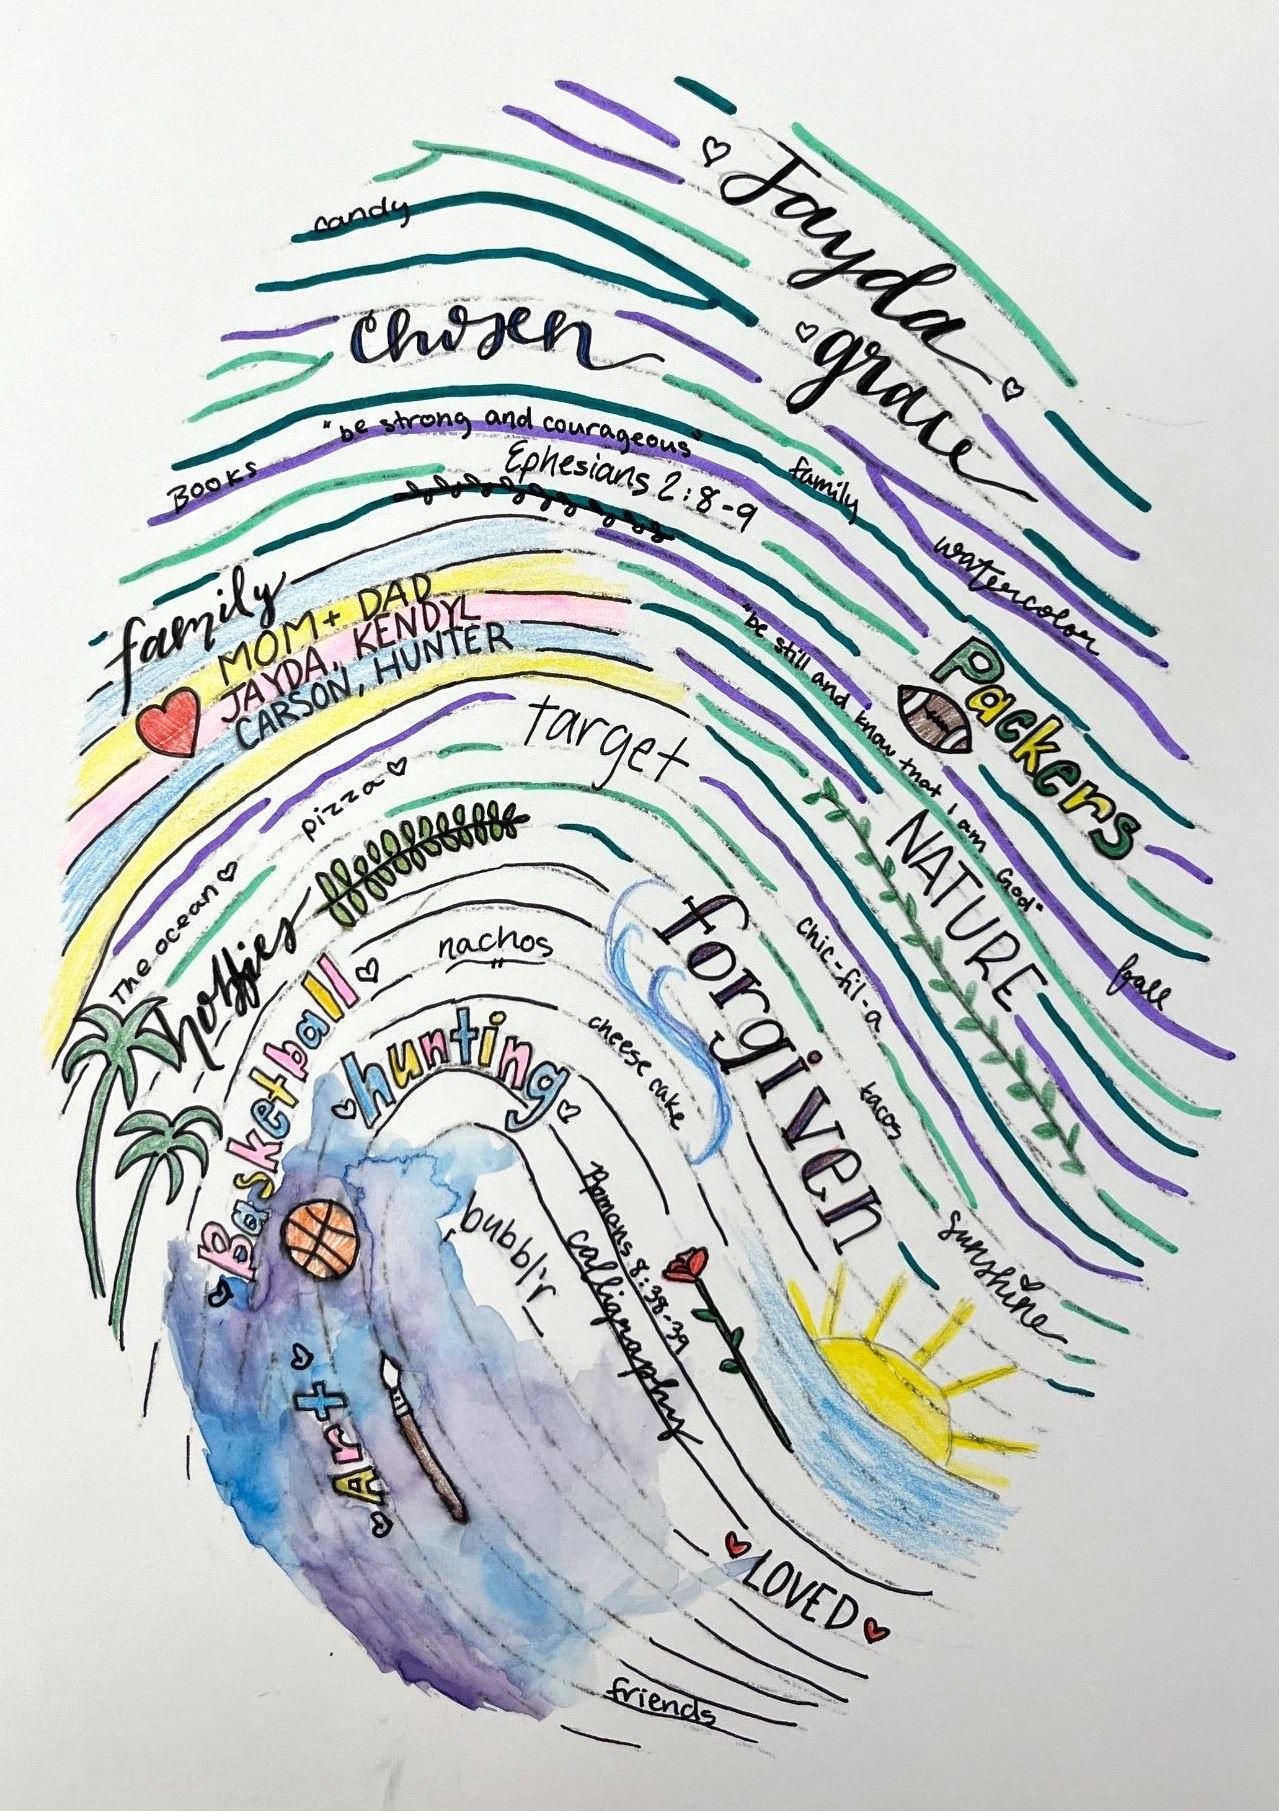 Jayda
grace
candy
chosen
"be strong and courageous"
Books
Ephesians 2:8-9
family
watercolor
family
MOM + DAD
JAYDA, KENDYL
CARSON, HUNTER
"be still and know that I am God"
Packers
target
pizza
NATURE
The ocean
hobbies
forgiven
nachos
chic-fil-a
fall
Basketball
hunting
cheese cake
tacos
Romans 8:38-39
bubbl'r
calligraphy
sunshine
Art
LOVED
friends